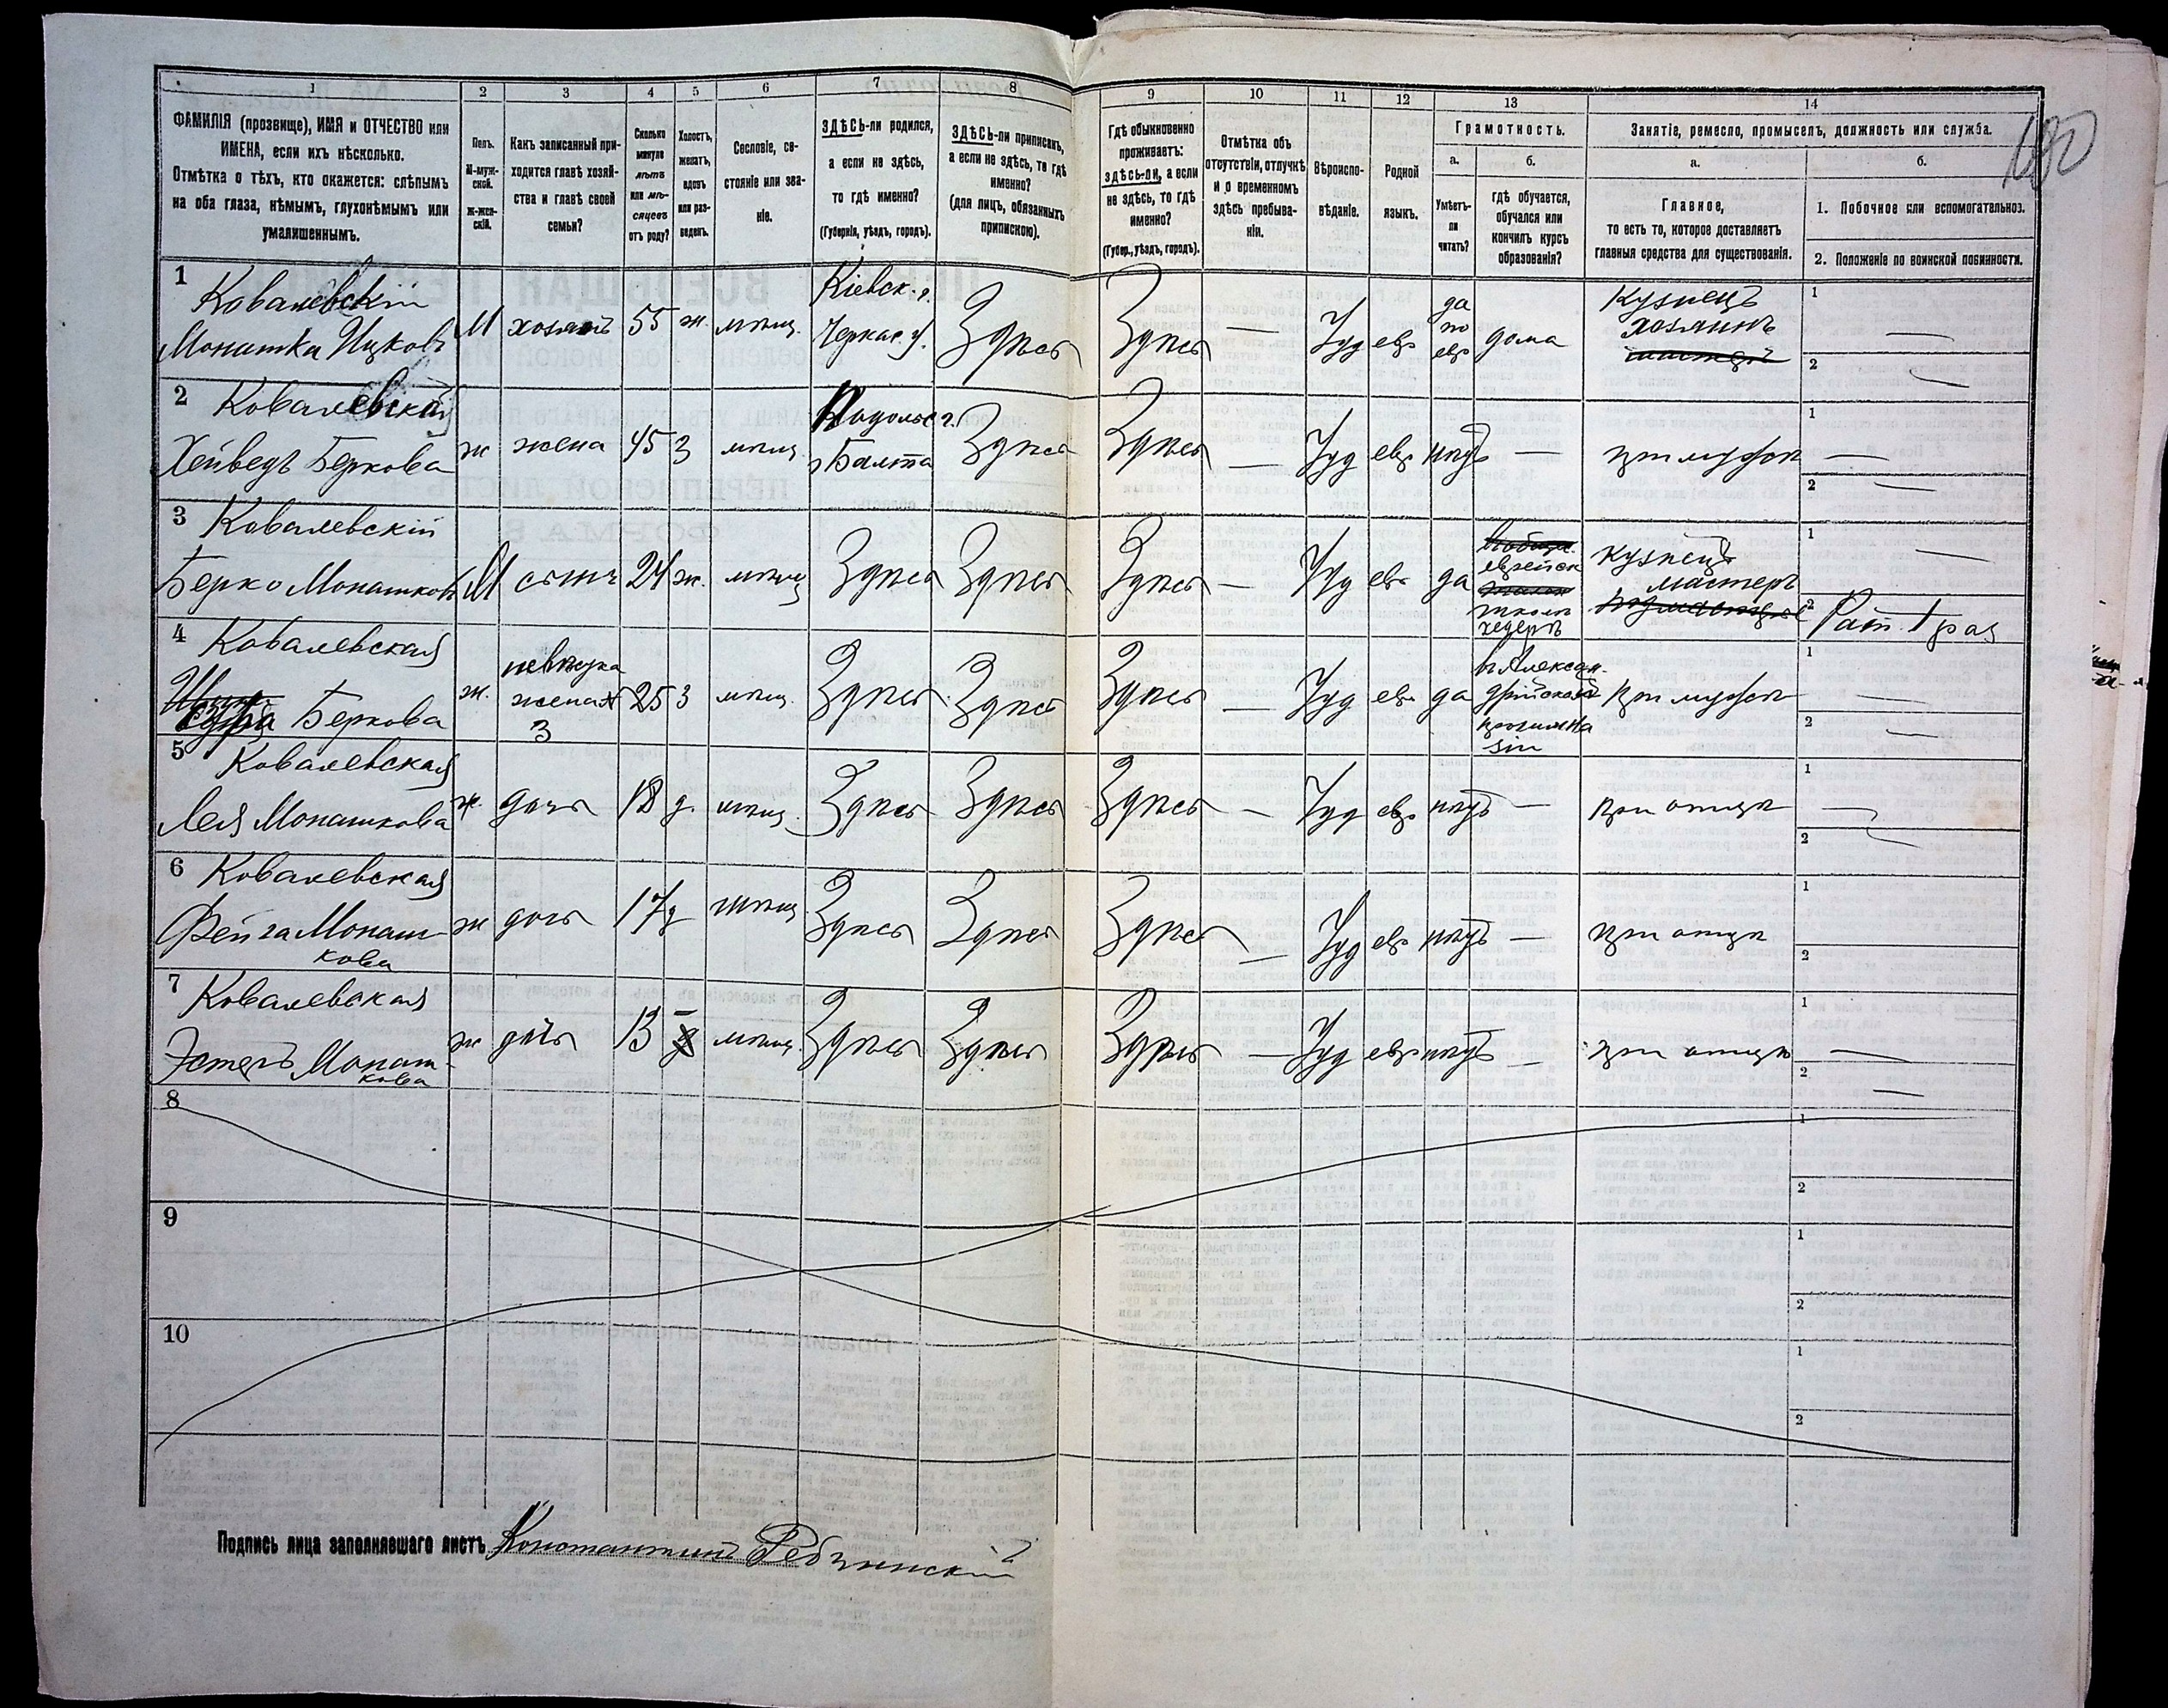 1 2 3 4 5 6 7 8 9 10 11 12 13 14
ФАМИЛІЯ (прозвище), ИМЯ и ОТЧЕСТВО или
ИМЕНА, если ихъ нѣсколько.
Отмѣтка о тѣхъ, кто окажется: слѣпымъ
на оба глаза, нѣмымъ, глухонѣмымъ или
умалишеннымъ.
Полъ.
М-муж-
ской.
ж-жен-
скій.
Какъ записанный при-
ходится главѣ хозяй-
ства и главѣ своей
семьи?
Сколько
минуло
лѣтъ
или мѣ-
сяцевъ
отъ роду?
Холостъ,
женатъ,
вдовъ
или раз-
веденъ.
Сословіе, со-
стояніе или зва-
ніе.
ЗДѢСЬ-ли родился,
а если не здѣсь,
то гдѣ именно?
(Губернія, уѣздъ, городъ).
ЗДѢСЬ-ли приписанъ,
а если не здѣсь, то гдѣ
именно?
(для лицъ, обязанныхъ
припискою).
Гдѣ обыкновенно
проживаетъ:
здѣсь-ли, а если
не здѣсь, то гдѣ
именно?
(Губер., уѣздъ, городъ).
Отмѣтка объ
отсутствіи, отлучкѣ
и о временномъ
здѣсь пребыва-
ніи.
Вѣроиспо-
вѣданіе.
Родной
языкъ.
Грамотность.
а.
Умѣетъ-
ли
читать?
б.
гдѣ обучается,
обучался или
кончилъ курсъ
образованія?
Занятіе, ремесло, промыселъ, должность или служба.
а.
Главное,
то есть то, которое доставляетъ
главныя средства для существованія.
б.
1. Побочное или вспомогательное.
2. Положеніе по воинской повинности.
1 Ковалевскій
Монашка Ицковъ М хозяинъ 55 ж. мѣщ. Кіевск. г. Черкас. у. Здѣсь Здѣсь — Іуд евр да по евр дома Кузнецъ хозяинъ 1 — 2 —
2 Ковалевская
Хейведъ Беркова ж жена 45 З мѣщ Подольс г. Балта Здѣсь Здѣсь — Іуд евр нѣтъ — при мужѣ 1 — 2 —
3 Ковалевскій
Берко Монашковъ М сынъ 24 ж. мѣщ Здѣсь Здѣсь Здѣсь — Іуд евр да еврейск школѣ хедеръ кузнецъ мастеръ 1 — 2 Рат. 1 раз
4 Ковалевская
Беркова ж. невѣстка жена 3 25 З мѣщ. Здѣсь Здѣсь Здѣсь — Іуд евр да въ Алексан- дрійской прогимна зіи при мужѣ 1 — 2 —
5 Ковалевская
Лея Монашкова ж. дочь 18 д. мѣщ. Здѣсь Здѣсь Здѣсь — Іуд евр нѣтъ — при отцѣ 1 — 2
6 Ковалевская
Фейга Монаш-
кова ж дочь 17 д мѣщ Здѣсь Здѣсь Здѣсь — Іуд евр нѣтъ — при отцѣ 1 2
7 Ковалевская
Эстеръ Монаш-
кова ж дочь 13 — мѣщ. Здѣсь Здѣсь Здѣсь — Іуд евр нѣтъ — при отцѣ 1 — 2 —
8 1 2
9 1 2
10 1 2
Подпись лица заполнявшаго листъ Константинъ